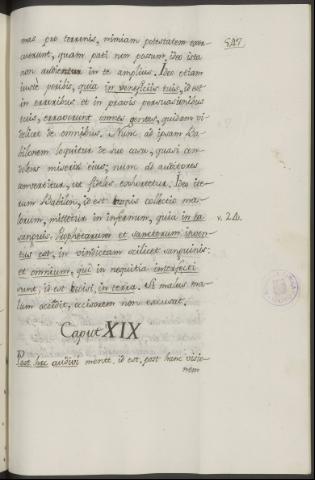 547
nas pro terrenis, nimiam potestatem exer-
cuerunt, quam pati non possum, ideo ista
non audientur in te amplius. Ideo etiam
iuste peribis, quia in veneficiis tuis, id est
in erroribus et in pravis persuasionibus
tuis, erraverunt omnes gentes, quidem vi-
delicet de omnibus. Nunc ad ipsam Ba-
bilonem loquitur de suo casu, quasi con-
dolens miseriæ eius; nunc ad auditores
convertitur, ut fideles exhortetur. Ideo ite-
rum Babilon, id est tropis collectio ma-
lorum, mittetur in infernum, quia in ea
v. 24.
sanguis Prophetarum et sanctorum inven-
tus est, in vindictam scilicet sanguinis:
et omnium, qui in nequitia interfecti
sunt, id est occisi, in terra. Si maius ma-
lum accidit, occisorem non excusat.
Caput XIX
Post hæc audivi mente, id est, post hanc visio-
nem